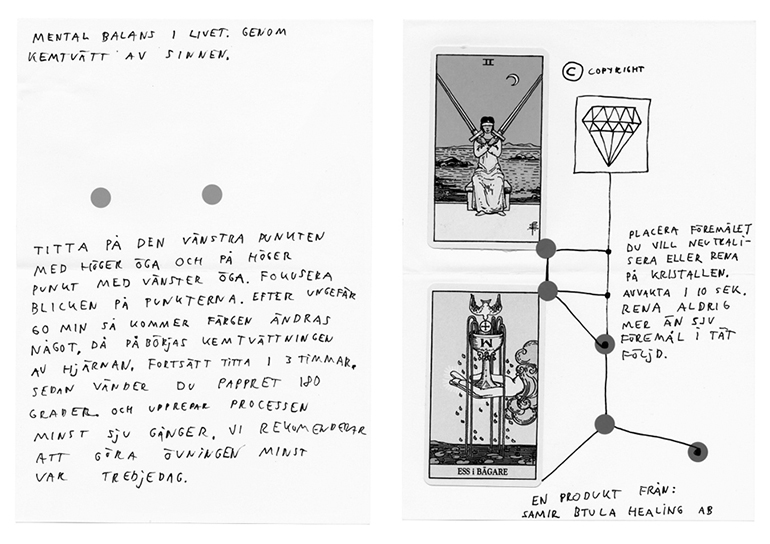 MENTAL BALANS I LIVET. GENOM
KEMTVÄTT AV SINNEN.
TITTA PÅ DEN VÄNSTRA PUNKTEN
MED HÖGER ÖGA OCH PÅ HÖGER
PUNKT MED VÄNSTER ÖGA. FOKUSERA
BLICKEN PÅ PUNKTERNA. EFTER UNGEFÄR
60 MIN SÅ KOMMER FÄRGEN ÄNDRAS
NÅGOT, DÅ PÅBÖRJAS KEMTVÄTTNINGEN
AV HJÄRNAN. FORTSÄTT TITTA I 3 TIMMAR,
SEDAN VÄNDER DU PAPPRET 180
GRADER OCH UPPREPAR PROCESSEN
MINST SJU GÅNGER. VI REKOMENDERAR
ATT GÖRA ÖVNINGEN MINST
VAR TREDJEDAG.
II
© COPYRIGHT
PLACERA FÖREMÅLET
DU VILL NEUTRALI-
SERA ELLER RENA
PÅ KRISTALLEN.
AVVAKTA I 10 SEK.
RENA ALDRIG
MER ÄN SJU
FÖREMÅL I TÄT
FÖLJD.
ESS i BÄGARE
EN PRODUKT FRÅN:
SAMIR BTULA HEALING AB